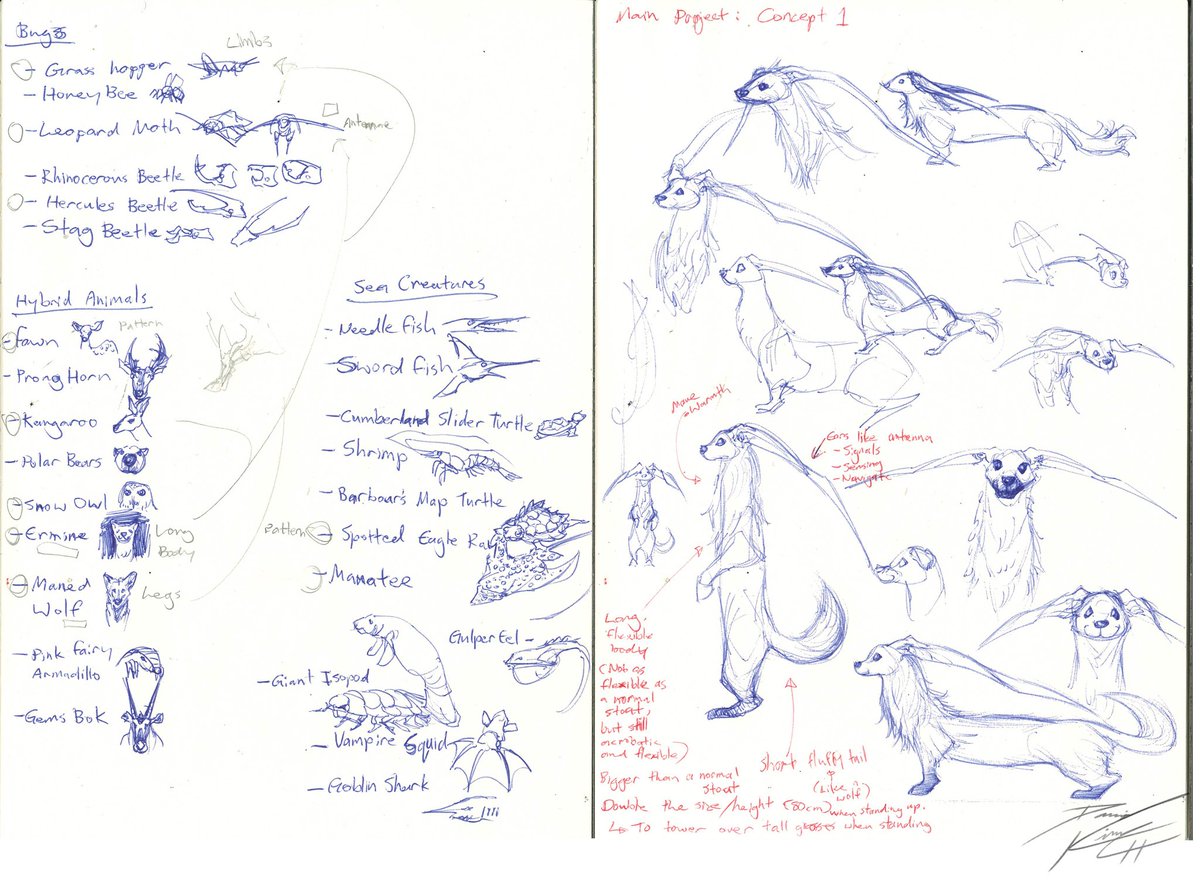 Bugs
Limbs
- Grass hopper
- Honey Bee
- Leopard Moth
Antennae
- Rhinocerous Beetle
- Hercules Beetle
- Stag Beetle
Hybrid Animals
- Fawn
Pattern
- Prong Horn
- Kangaroo
- Polar Bears
- Snow Owl
- Ermine
Long
Body
- Maned
Wolf
Legs
- Pink Fairy
Armadillo
- Gems Bok
Sea Creatures
- Needle fish
- Sword fish
- Cumberland Slider Turtle
- Shrimp
- Barbour's Map Turtle
Pattern
- Spotted Eagle Ray
- Manatee
Gulper Eel -
- Giant Isopod
- Vampire Squid
- Goblin Shark
Main Project: Concept 1
Mane
warmth
Ears like antenna
- Signals
- Sensing
- Navigate
Long,
flexible
body
(Not as
flexible as
a normal
stoat,
but still
acrobatic
and flexible)
Short fluffy tail
(Like a
wolf)
Bigger than a normal
stoat
Double the size/height (80cm) when standing up.
To tower over tall grasses when standing